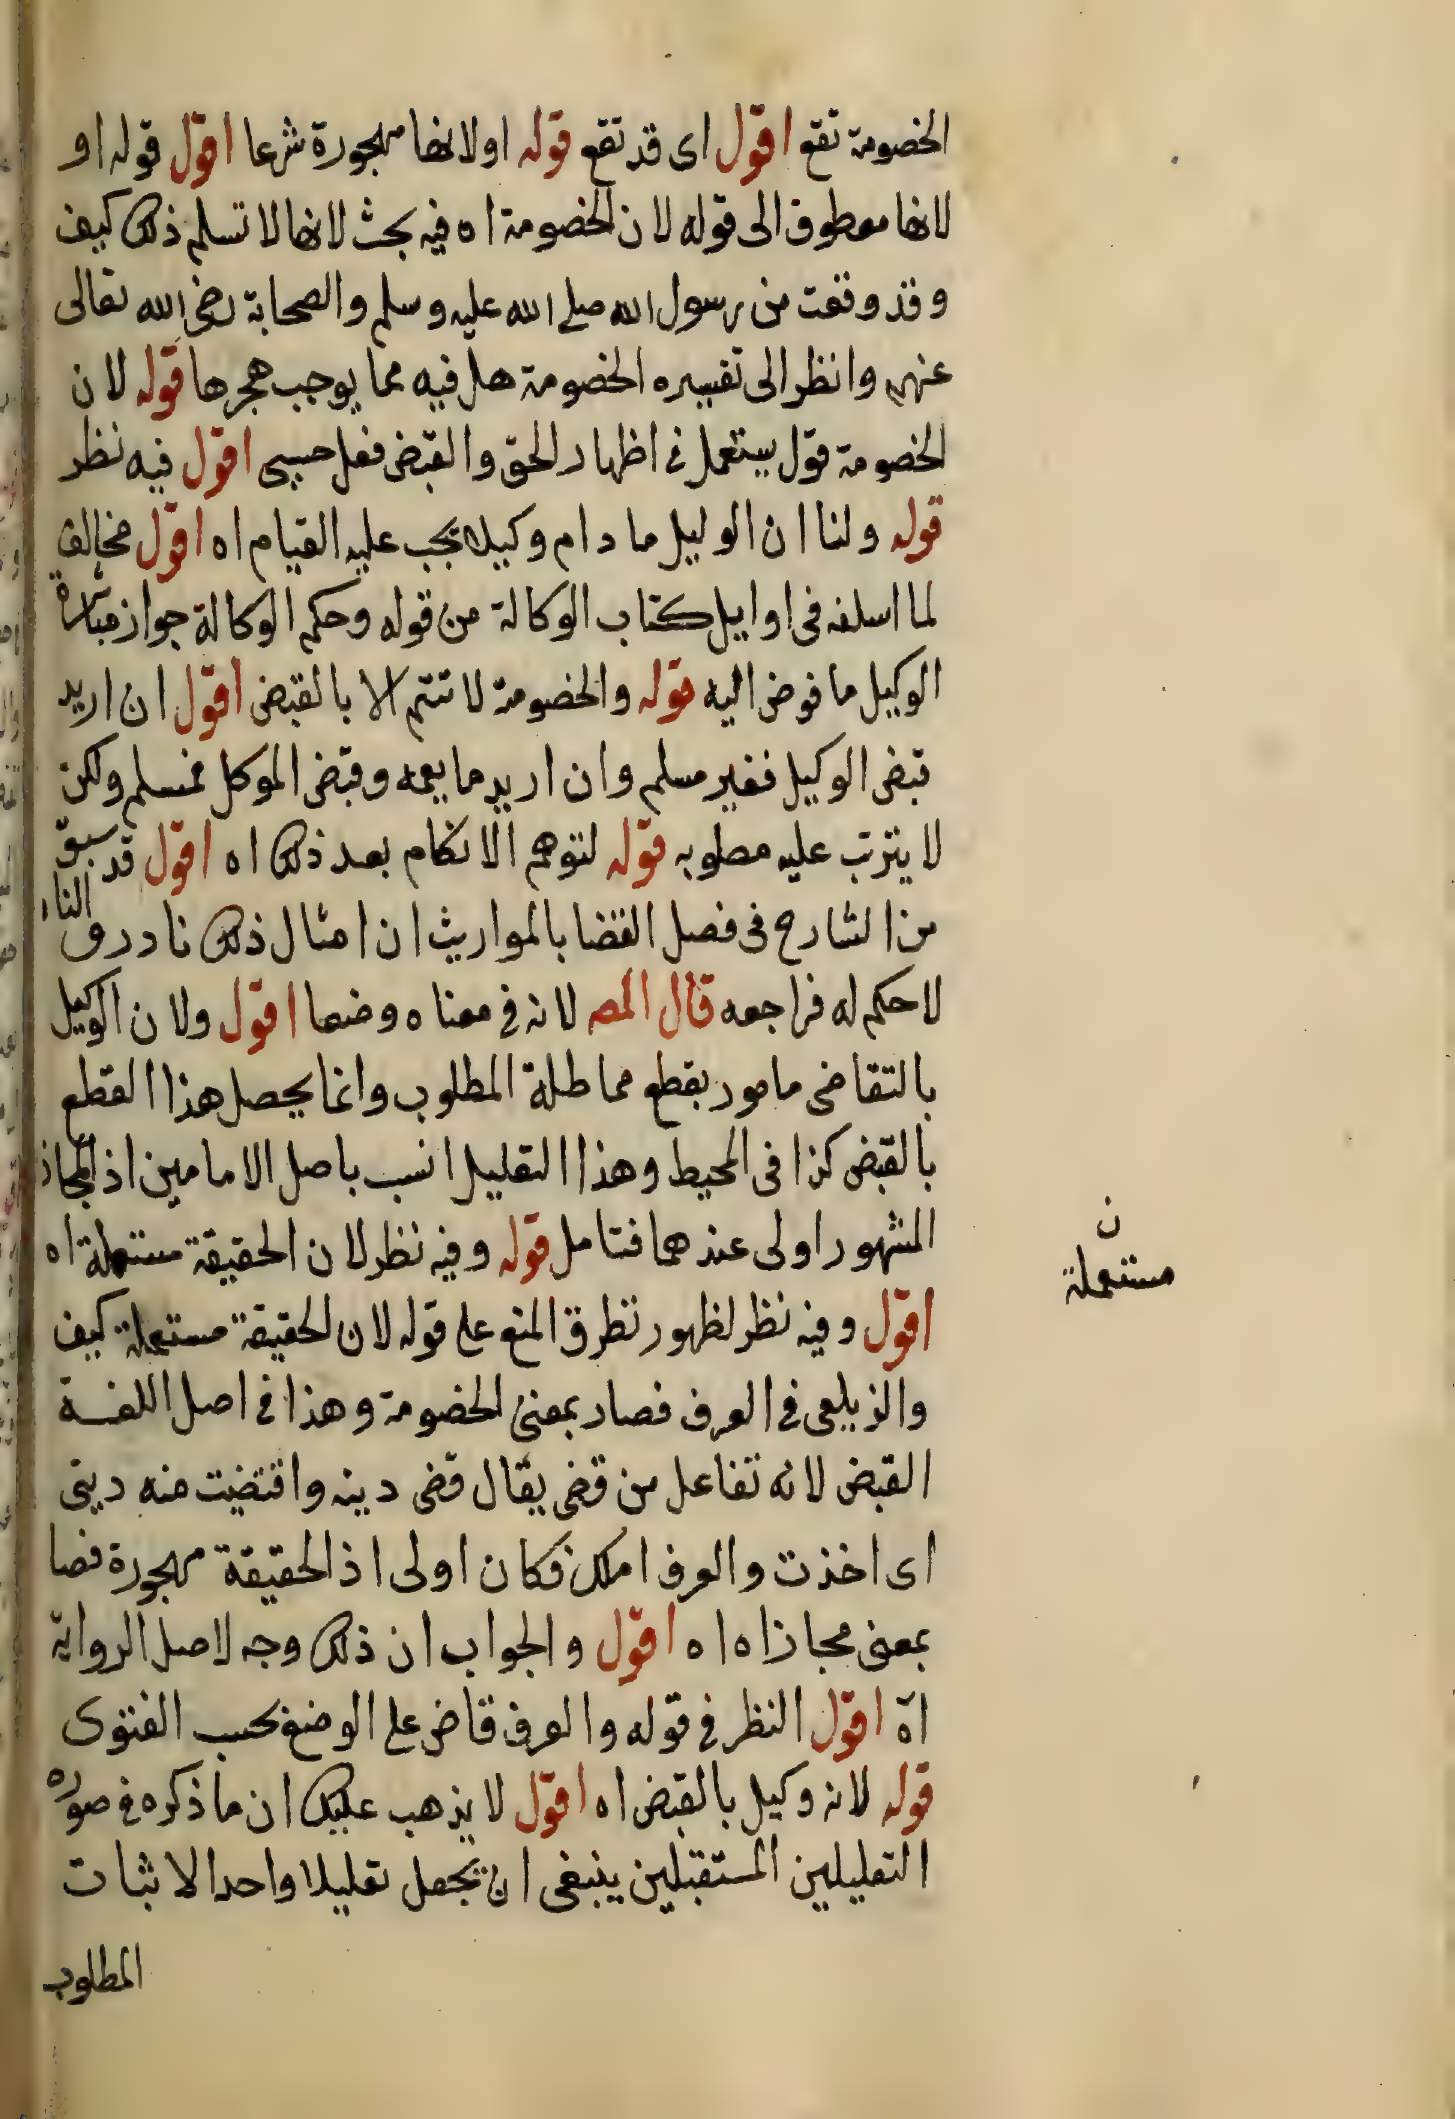 الخصومة تقع اقول اى قد تقع قوله اولانها مهجورة شرعا اقول قوله او
لانها معطوف الى قوله لان الخصومة اه فيه بحث لانها لا تسلم ذلك كيف
وقد وقعت من رسول الله صلى الله عليه وسلم والصحابة رضى الله تعالى
عنهم وانظر الى تفسيره الخصومة هل فيه مما يوجب هجرها قوله لان
الخصومة قول يستعمل فى اظهار الحق والقبض فعل حسى اقول فيه نظر
قوله ولنا ان الوليل ما دام وكيلا يجب عليه القيام اه اقول مخالف
لما اسلفه فى اوايل كتاب الوكالة من قوله وحكم الوكالة جواز مباشرة
الوكيل ما فوض اليه قوله والخصومة لا تتم الا بالقبض اقول ان اريد
قبض الوكيل فغير مسلم وان اريد ما يعمه وقبض الموكل فمسلم ولكن
لا يترتب عليه مطلوبه قوله لتوهم الانكام بعد ذلك اه اقول قد سبق
من الشارح فى فصل القضا بالمواريث ان امثال ذلك نادر و النا
لا حكم له فراجعه قال المص لانه فى معناه وضعا اقول ولان الوكيل
بالتقاضى مامور بقطع مماطلة المطلوب وانما يحصل هذا القطع
بالقبض كذا فى المحيط وهذا التعليل انسب باصل الامامين اذ المجاز
المشهور اولى عندهما فتامل قوله وفيه نظر لان الحقيقة مستعملة اه
ن
مستعملة
اقول وفيه نظر لظهور تطرق المنع على قوله لان الحقيقة مستعملة كيف
والزيلعى فى العرف فصار بمعنى الخصومة وهذا فى اصل اللغة
القبض لانه تفاعل من قضى يقال قضى دينه واقتضيت منه دينى
اى اخذت والعرف املك فكان اولى اذ الحقيقة مهجورة فصا
بمعنى مجازا ه اه اقول والجواب ان ذلك وجه لاصل الرواية
اه اقول النظر فى قوله والعرف قاض على الوضع بحسب الفتوى
قوله لانه وكيل بالقبض اه اقول لا يذهب عليك ان ما ذكره فى صوره
التعليلين المستقبلين ينبغى ان يجعل تعليلا واحدا لاثبات
المطلوب